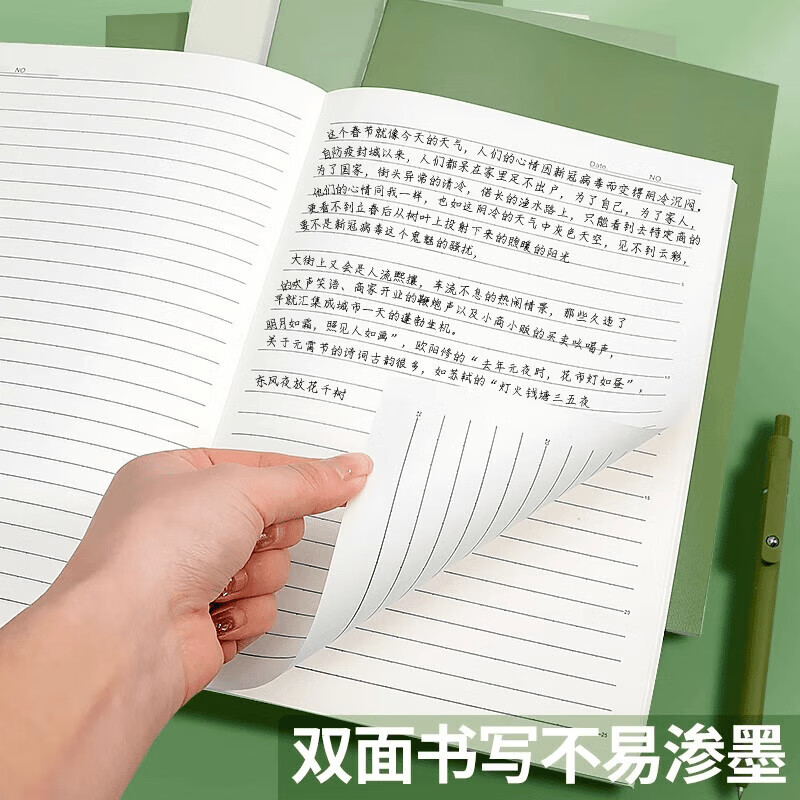 NO
Date NO.
这个春节就像今天的天气，人们的心情因新冠病毒而变得阴冷沉闷，
自防疫封城以来，人们都呆在家里足不出户，为了自己，为了家人，
为了国家，街头异常的清冷，偌长的渔水路上，只能看到去特定商的
他们的心情同我一样，也如这阴冷的天气中灰色天空，见不到云彩，
更看不到立春后从树叶上投射下来的暖暖的阳光
毫不是新冠病毒这个鬼魅的骚扰，
大街上又会是人流熙攘，车流不息的热闹情景，那些久违了
的欢声笑语、商家开业的鞭炮声以及小商小贩的买卖吆喝声，
早就汇集成城市一天的蓬勃生机。
明月如霜，照见人如画”，欧阳修的“去年元夜时，花市灯如昼”，
关于元霄节的诗词古韵很多，如苏轼的“灯火钱塘三五夜
东风夜放花千树
5
10
15
20
25
双面书写不易渗墨